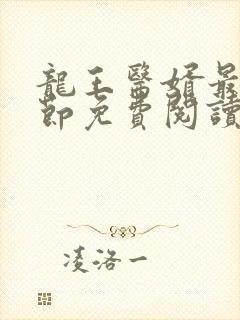 龍王醫婿最
節免費閱讀
凌洛一